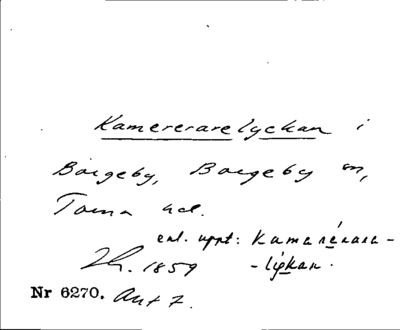 Kamererarelyckan i
Borgeby, Borgeby sn,
Torna hd.
enl. uppt: Kamarérara-
Lh. 1859 -lýkan.
Nr 6270. Ant 7.